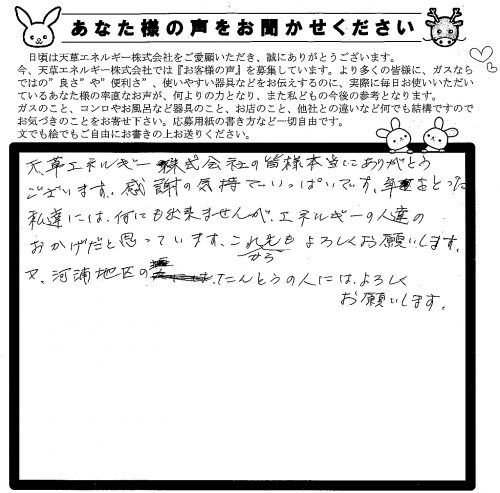 あなた様の声をお聞かせください
日頃は天草エネルギー株式会社をご愛顧いただき、誠にありがとうございます。
今、天草エネルギー株式会社では『お客様の声』を募集しています。より多くの皆様に、ガスなら
ではの”良さ”や”便利さ”、使いやすい器具などをお伝えするのに、実際に毎日お使いいただい
ているあなた様の率直なお声が、何よりの力となり、また私どもの今後の参考となります。
ガスのこと、コンロやお風呂など器具のこと、お店のこと、他社との違いなど何でも結構ですので
お気づきのことをお寄せ下さい。応募用紙の書き方など一切自由です。
文でも絵でもご自由にお書きの上お送りください。
天草エネルギー株式会社の皆様本当にありがとう
ございます。感謝の気持でいっぱいです。年をとった
私達には、何にも出来ませんが、エネルギーの人達の
おかげだと思っています。これからもよろしくお願いします。
又、河浦地区のたんとうの人には、よろしく
お願いします。